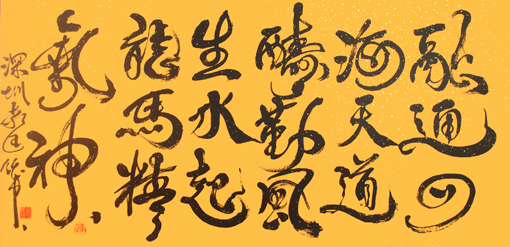 融通四
海天道
酬勤風
生水起
龍馬精
氣神
深圳